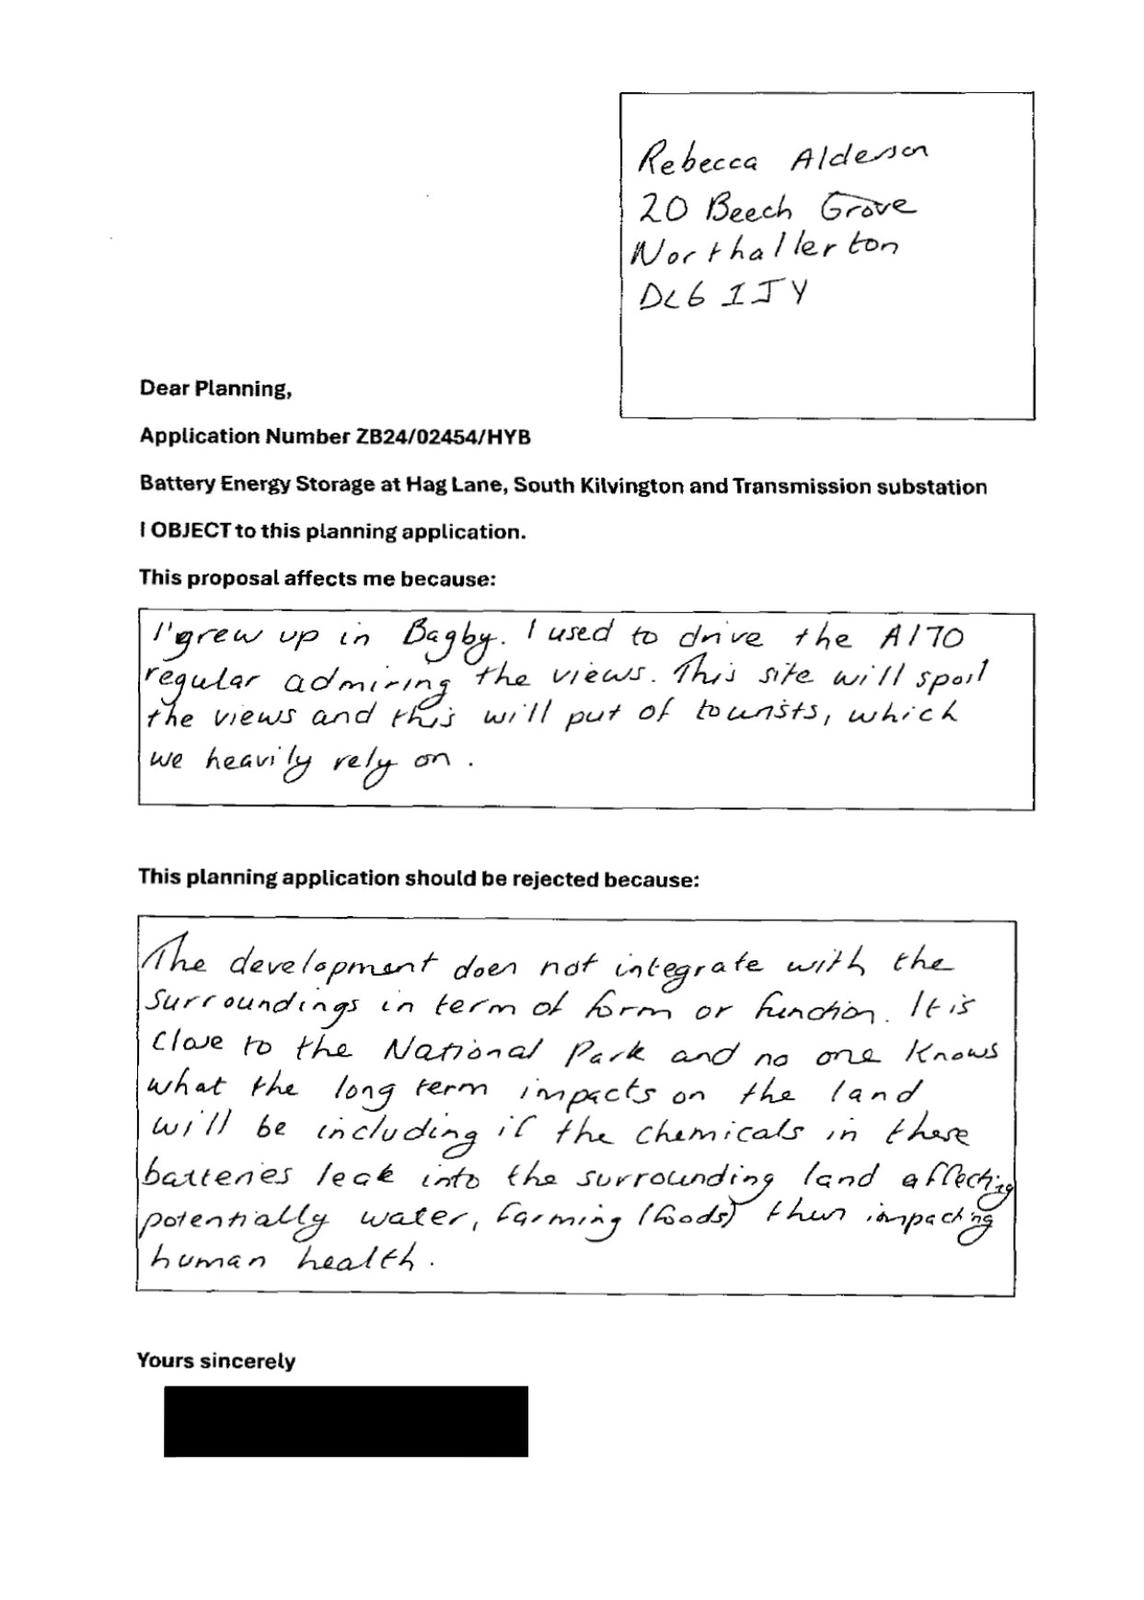 Rebecca Alderson
20 Beech Grove
Northallerton
DL6 1JY
Dear Planning,
Application Number ZB24/02454/HYB
Battery Energy Storage at Hag Lane, South Kilvington and Transmission substation
I OBJECT to this planning application.
This proposal affects me because:
I grew up in Bagby. I used to drive the A170
regular admiring the views. This site will spoil
the views and this will put of tourists, which
we heavily rely on.
This planning application should be rejected because:
The development does not integrate with the
surroundings in term of form or function. It is
close to the National Park and no one knows
what the long term impacts on the land
will be including if the chemicals in these
batteries leak into the surrounding land affecting
potentially water, farming (foods) thus impacting
human health.
Yours sincerely